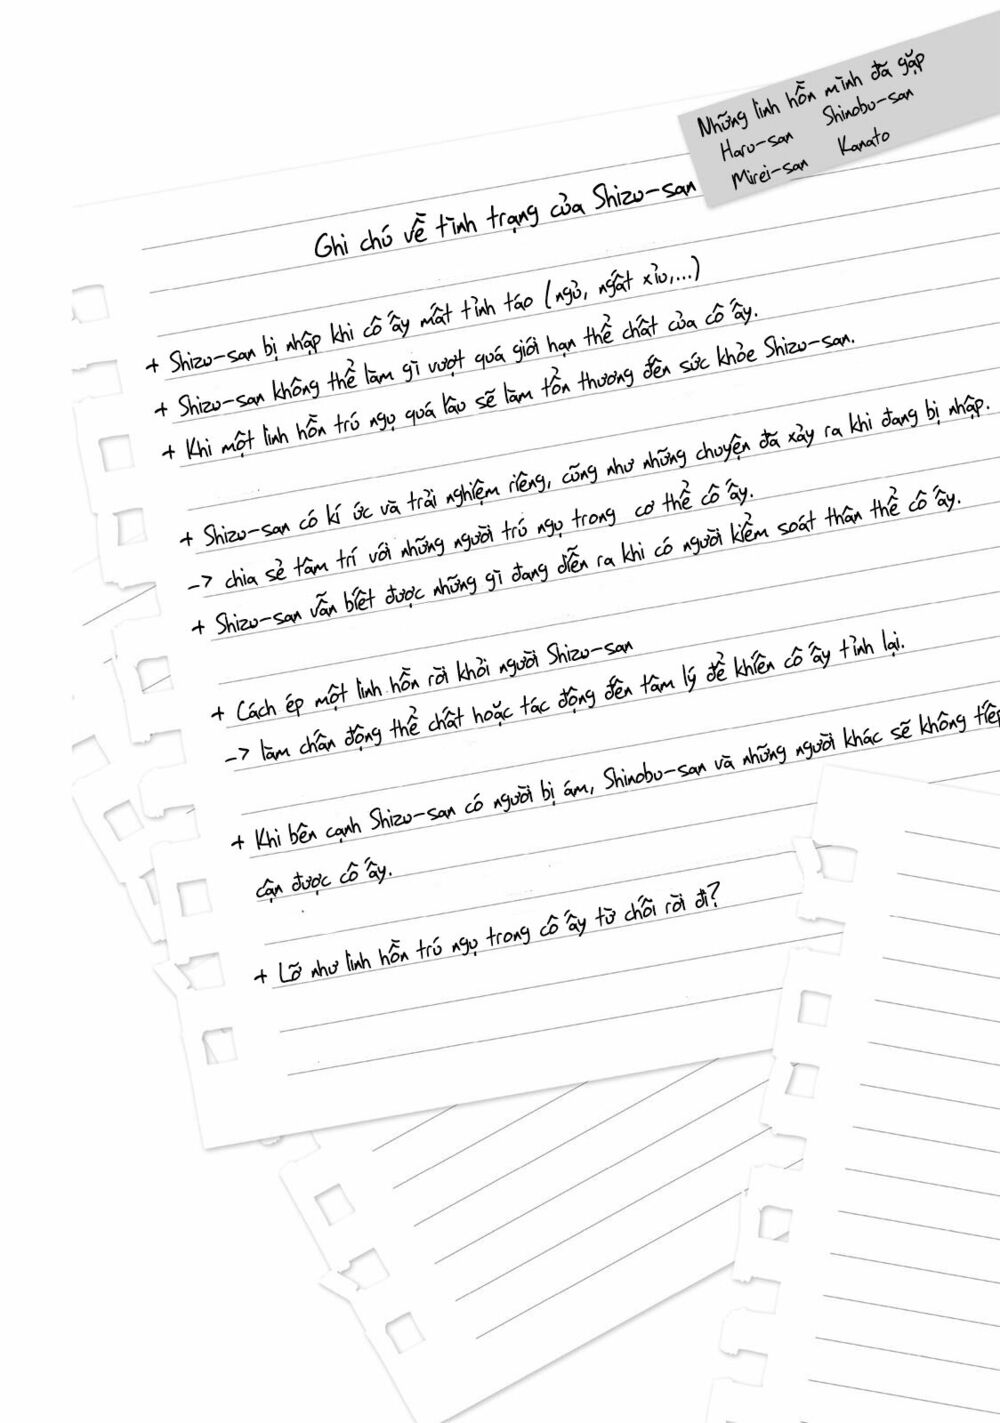 Những linh hồn mình đã gặp
Haru-san Shinobu-san
Mirei-san Kanato
Ghi chú về tình trạng của Shizu-san
+ Shizu-san bị nhập khi cô ấy mất tỉnh táo (ngủ, ngất xỉu,...)
+ Shizu-san không thể làm gì vượt quá giới hạn thể chất của cô ấy.
+ Khi một linh hồn trú ngụ quá lâu sẽ làm tổn thương đến sức khỏe Shizu-san.
+ Shizu-san có kí ức và trải nghiệm riêng, cũng như những chuyện đã xảy ra khi đang bị nhập.
-> chia sẻ tâm trí với những người trú ngụ trong cơ thể cô ấy.
+ Shizu-san vẫn biết được những gì đang diễn ra khi có người kiểm soát thân thể cô ấy.
+ Cách ép một linh hồn rời khỏi người Shizu-san
-> làm chấn động thể chất hoặc tác động đến tâm lý để khiến cô ấy tỉnh lại.
+ Khi bên cạnh Shizu-san có người bị ám, Shinobu-san và những người khác sẽ không tiếp
cận được cô ấy.
+ Lỡ như linh hồn trú ngụ trong cô ấy từ chối rời đi?